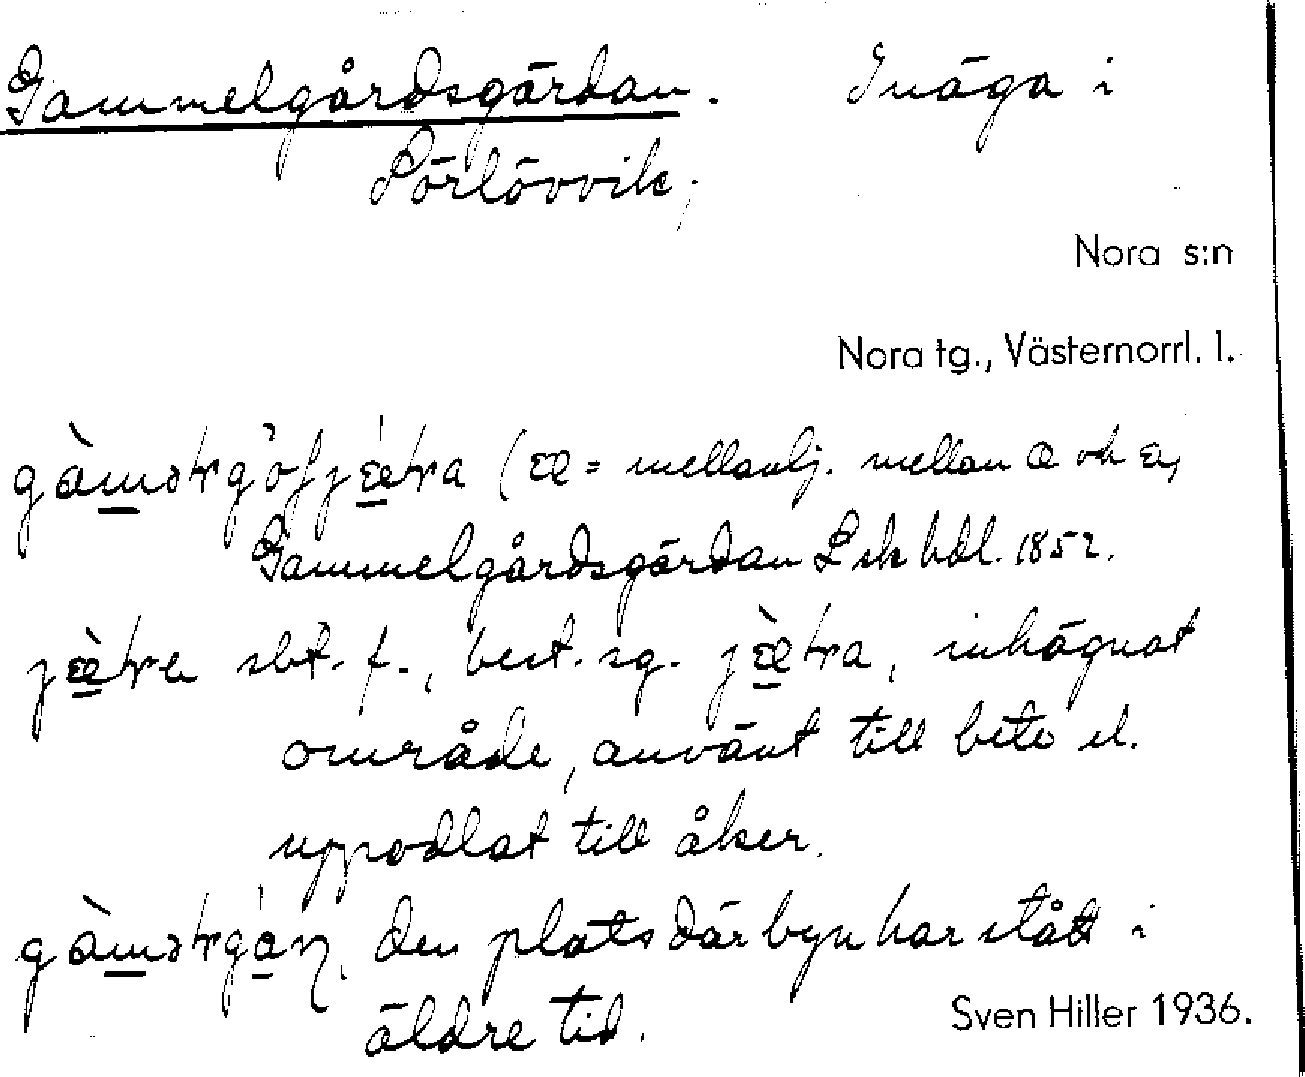 Gammelgårdsgärdan. Inäga i
Pörlövvik,
Nora s:n
Nora tg., Västernorrl. l.
(æ = mellanlj. mellan æ och
Gammelgårdsgärdan L sk hdl. 1852.
sbt. f., best. sg. , inhägnat
område, använt till bete el.
uppodlat till åker.
den plats där byn har stått i
äldre tid.
Sven Hiller 1936.